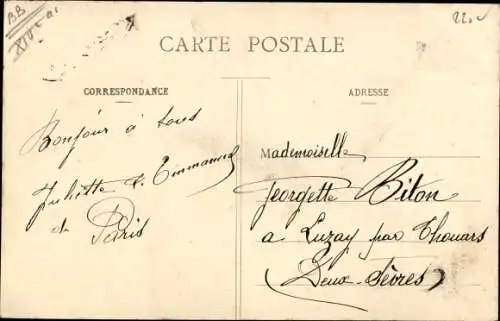 BB
XIVe a.
22.
CARTE POSTALE
CORRESPONDANCE
ADRESSE
Bonjour à tous
Juliette & Emmanuel
de Paris
Mademoiselle
Georgette Biton
a Luzay par Thouars
(Deux-Sèvres)